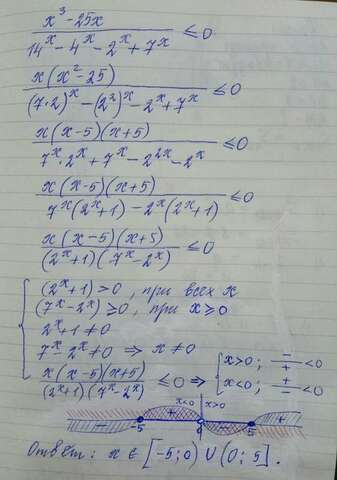 x³ - 25x / 14ˣ - 4ˣ - 2ˣ + 7ˣ ≤ 0
x(x² - 25) / (7·2)ˣ - (2²)ˣ - 2ˣ + 7ˣ ≤ 0
x(x-5)(x+5) / 7ˣ·2ˣ + 7ˣ - 2²ˣ - 2ˣ ≤ 0
x(x-5)(x+5) / 7ˣ(2ˣ+1) - 2ˣ(2ˣ+1) ≤ 0
x(x-5)(x+5) / (2ˣ+1)(7ˣ-2ˣ) ≤ 0
(2ˣ+1) > 0, при всех x
(7ˣ-2ˣ) ≥ 0, при x ≥ 0
2ˣ+1 ≠ 0
7ˣ-2ˣ ≠ 0 ⇒ x ≠ 0
x(x-5)(x+5) / (2ˣ+1)(7ˣ-2ˣ) ≤ 0 ⇒ { x>0; -/+ <0
x<0; +/- <0
+ x<0 x>0 +
- -5 0 - 5
Ответ: x ∈ [-5; 0) ∪ (0; 5].